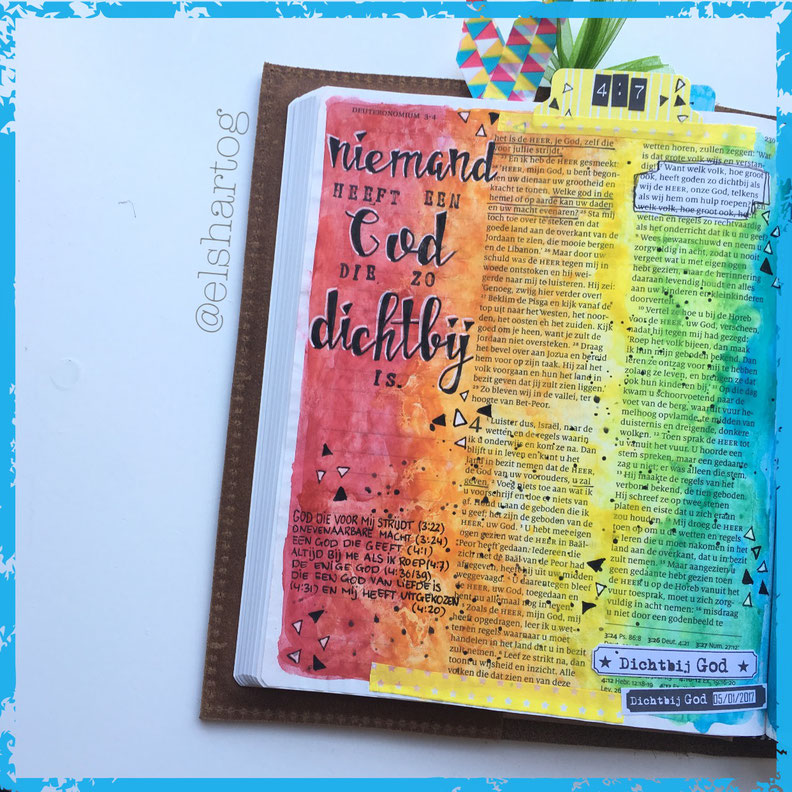 @elshartog
4:7
DEUTERONOMIUM 3·4
niemand
HEEFT EEN
God
DIE ZO
dichtbij
IS.
GOD DIE VOOR MIJ STRIJDT (3:22)
ONEVENAARBARE MACHT (3:24)
EEN GOD DIE GEEFT (4:1)
ALTIJD BIJ ME ALS IK ROEP (4:7)
DE ENIGE GOD (4:36/39)
DIE EEN GOD VAN LIEFDE IS
(4:31) EN MIJ HEEFT UITGEKOZEN
(4:20)
het is de HEER, je God, zelf die
voor jullie strijdt.'
En ik heb de HEER gesmeekt:
'HEER, mijn God, u bent begon-
nen uw dienaar uw grootheid en
kracht te tonen. Welke god in de
hemel of op aarde kan uw daden
en uw macht evenaren? 25 Sta mij
toch toe over te steken en dat
goede land aan de overkant van de
Jordaan te zien, die mooie bergen
en de Libanon.' 26 Maar door uw
schuld was de HEER tegen mij in
woede ontstoken en hij wei-
gerde naar mij te luisteren. Hij zei:
'Genoeg, zwijg hier verder over!
Beklim de Pisga en kijk vanaf de
top uit naar het westen, het noor-
den, het oosten en het zuiden. Kijk
goed om je heen, want je zult de
Jordaan niet oversteken. 28 Draag
het bevel over aan Jozua en bereid
hem voor op zijn taak. Hij zal het
volk voorgaan en hun het land in
bezit geven dat jij zult zien liggen.'
29 Zo bleven wij in de vallei, ter
hoogte van Bet-Peor.
4 Luister dus, Israël, naar de
wetten en de regels waarin
ik u onderwijs en kom ze na. Dan
blijft u in leven en kunt u het
land in bezit nemen dat de HEER,
de God van uw voorouders, u zal
geven. 2 Voeg niets toe aan wat ik
u voorschrijf en doe er niets van
af; houd u aan de geboden die ik
u geef; het zijn de geboden van de
HEER, uw God. 3 U hebt met eigen
ogen gezien wat de HEER in Baäl-
Peor heeft gedaan. Iedereen die
zich met de Baäl van de Peor had
afgegeven, heeft hij uit uw midden
weggevaagd. U daarentegen bleef
de HEER, uw God, toegedaan en
bent nu allemaal nog in leven.
5 Zoals de HEER, mijn God, mij
heeft opgedragen, leer ik u wet-
ten en regels waarnaar u moet
handelen in het land dat u in bezit
zult nemen. Leef ze strikt na, dan
toont u wijsheid en inzicht. Alle
volken die dat zien en van deze
wetten horen, zullen zeggen: 'Wat
is dat grote volk wijs en verstan-
dig!' 7 Want welk volk, hoe groot
ook, heeft goden zo dichtbij als
wij de HEER, onze God, telkens
als wij hem om hulp roepen?
welk volk, hoe groot ook,
wetten en regels zo rechtvaardig
als het onderricht dat ik u nu geef?
9 Wees gewaarschuwd en neem u
zorgvuldig in acht, zodat u nooit
vergeet wat u met eigen ogen
hebt gezien; maar de herinnering
daaraan levendig houdt en alles
aan uw kinderen en kleinkinderen
doorvertelt.
10 Vertel ze hoe u bij de Horeb
voor de HEER, uw God, verscheen,
nadat hij tegen mij had gezegd:
'Roep het volk bijeen, dan maak
ik hun mijn geboden bekend. Dan
leren ze ontzag voor mij te hebben
zolang ze leven, en brengen ze dat
ook hun kinderen bij.' 11 Op die dag
kwam u schoorvoetend naar de
voet van de berg, waaruit vuur he-
melhoog opvlamde, te midden van
duisternis en dreigende, donkere
wolken. 12 Toen sprak de HEER tot
u vanuit het vuur. U hoorde een
stem spreken, maar een gedaante
zag u niet; er was alleen die stem.
13 Hij maakte de regels van het
verbond bekend, de tien geboden.
Hij schreef ze op twee stenen
platen en eiste dat u zich eraan
zou houden. 14 Mij droeg de HEER
toen op om u de wetten en regels
te leren die u moet nakomen in het
land aan de overkant, dat u in bezit
zult nemen. 15 Maar aangezien u
geen gedaante hebt gezien toen
de HEER u op de Horeb vanuit het
vuur toesprak, moet u zich zorg-
vuldig in acht nemen: 16 misdraag
u niet door een godenbeeld te
3:24 Ps. 86:8 3:26 Deut. 4:21 3:27 Num. 27:12
★ Dichtbij God ★
Dichtbij God 05/01/2017